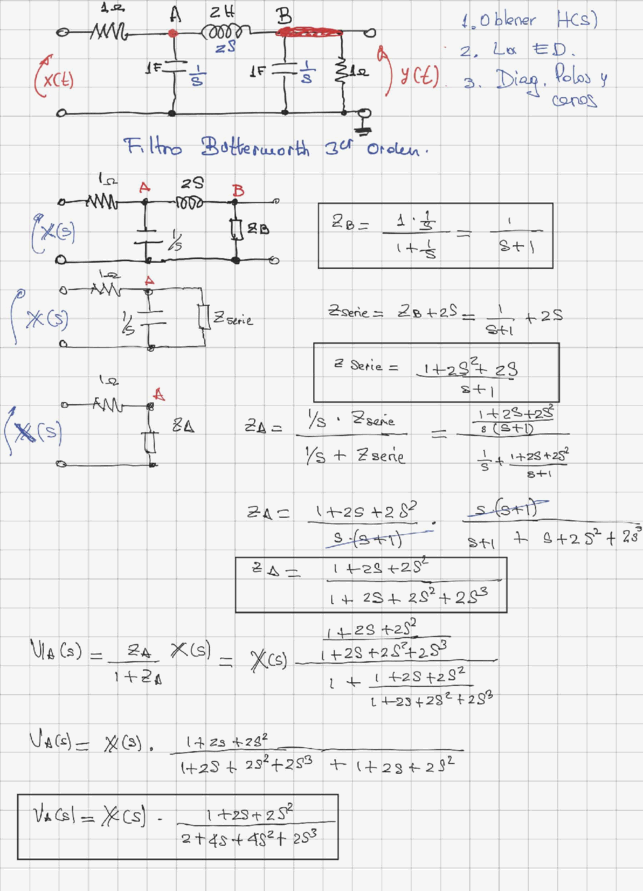 1Ω A 2H B
2S
1F 1/S 1F 1/S 1Ω
x(t) y(t)
1. Obtener H(s)
2. La ED.
3. Diag. Polos y
ceros
Filtro Butterworth 3er orden.
1Ω A 2S B
X(s) 1/s ZB
ZB = (1 · 1/s) / (1 + 1/s) = 1 / (s+1)
1Ω A
X(s) 1/s Zserie
Zserie = ZB + 2S = 1/(s+1) + 2S
Z serie = (1+2S²+2S) / (s+1)
1Ω A
X(s) ZA
ZA = (1/s · Zserie) / (1/s + Zserie) = ((1+2S+2S²) / (s(s+1))) / (1/s + (1+2S+2S²)/(s+1))
ZA = (1+2S+2S²) / (s·(s+1)) · (s(s+1)) / (s+1 + s+2S²+2S³)
ZA = (1+2S+2S²) / (1+2S+2S²+2S³)
VA(s) = ZA/(1+ZA) X(s) = X(s) ((1+2S+2S²) / (1+2S+2S²+2S³)) / (1 + (1+2S+2S²) / (1+2S+2S²+2S³))
VA(s) = X(s) · (1+2S+2S²) / (1+2S+2S²+2S³ + 1+2S+2S²)
VA(s) = X(s) · (1+2S+2S²) / (2+4S+4S²+2S³)